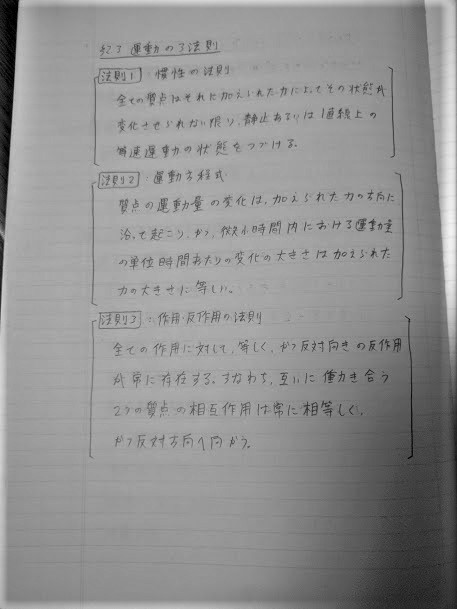 運動の3法則
法則1: 慣性の法則
全ての質点はそれに加えられた力によってその状態が
変化させられない限り、静止あるいは1直線上の
等速運動の状態をつづける。
法則2: 運動方程式
質点の運動量の変化は、加えられた力の方向に
沿って起こり、かつ、微小時間内における運動量
の単位時間あたりの変化の大きさは加えられた
力の大きさに等しい。
法則3: 作用・反作用の法則
全ての作用に対して、等しく、かつ反対向きの反作用
が常に存在する。すなわち、互いに働き合う
2つの質点の相互作用は常に相等しく、
かつ反対方向へ向かう。